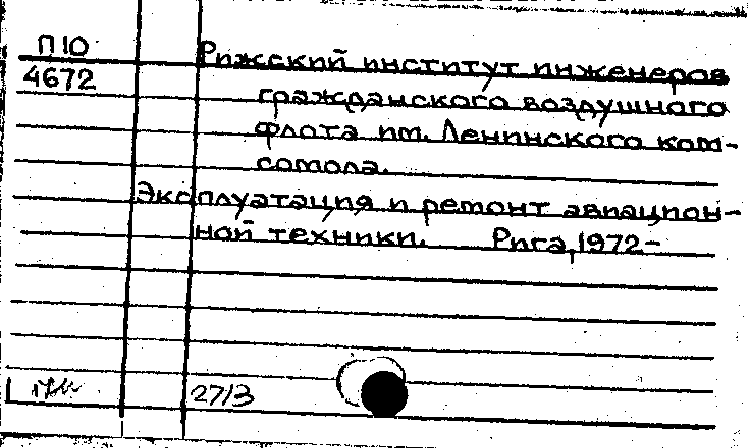 П10
4672
Рижский институт инженеров
гражданского воздушного
флота им. Ленинского ком-
сомола.
Эксплуатация и ремонт авиацион-
ной техники. Рига, 1972-
27/3